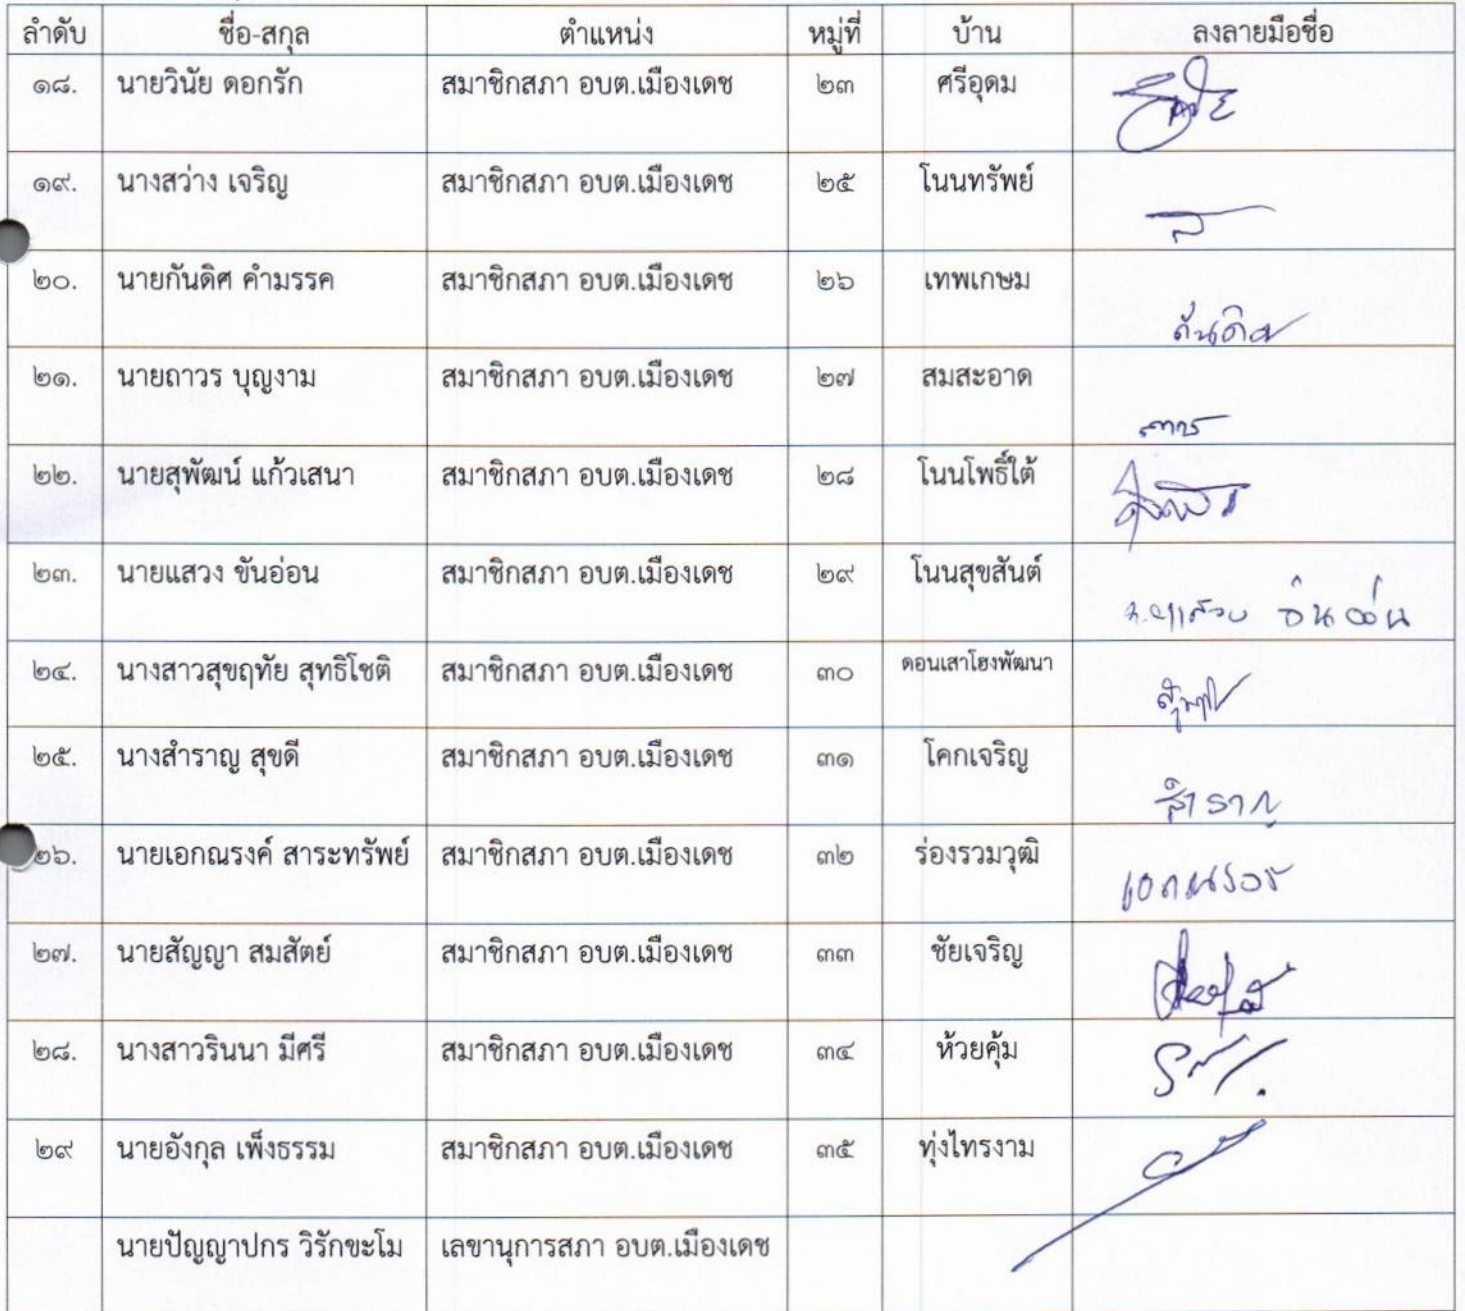 ลำดับ ชื่อ-สกุล ตำแหน่ง หมู่ที่ บ้าน ลงลายมือชื่อ
๑๘. นายวินัย ดอกรัก สมาชิกสภา อบต.เมืองเดช ๒๓ ศรีอุดม
๑๙. นางสว่าง เจริญ สมาชิกสภา อบต.เมืองเดช ๒๕ โนนทรัพย์
๒๐. นายกันดิศ คำมรรค สมาชิกสภา อบต.เมืองเดช ๒๖ เทพเกษม
๒๑. นายถาวร บุญงาม สมาชิกสภา อบต.เมืองเดช ๒๗ สมสะอาด
๒๒. นายสุพัฒน์ แก้วเสนา สมาชิกสภา อบต.เมืองเดช ๒๘ โนนโพธิ์ใต้
๒๓. นายแสวง ขันอ่อน สมาชิกสภา อบต.เมืองเดช ๒๙ โนนสุขสันต์
๒๔. นางสาวสุขฤทัย สุทธิโชติ สมาชิกสภา อบต.เมืองเดช ๓๐ ดอนเสาโฮงพัฒนา
๒๕. นางสำราญ สุขดี สมาชิกสภา อบต.เมืองเดช ๓๑ โคกเจริญ สำราญ
๒๖. นายเอกณรงค์ สาระทรัพย์ สมาชิกสภา อบต.เมืองเดช ๓๒ ร่องรวมวุฒิ
๒๗. นายสัญญา สมสัตย์ สมาชิกสภา อบต.เมืองเดช ๓๓ ชัยเจริญ
๒๘. นางสาวรินนา มีศรี สมาชิกสภา อบต.เมืองเดช ๓๔ ห้วยคุ้ม
๒๙ นายอังกุล เพ็งธรรม สมาชิกสภา อบต.เมืองเดช ๓๕ ทุ่งไทรงาม
นายปัญญาปกร วิรักขะโม เลขานุการสภา อบต.เมืองเดช